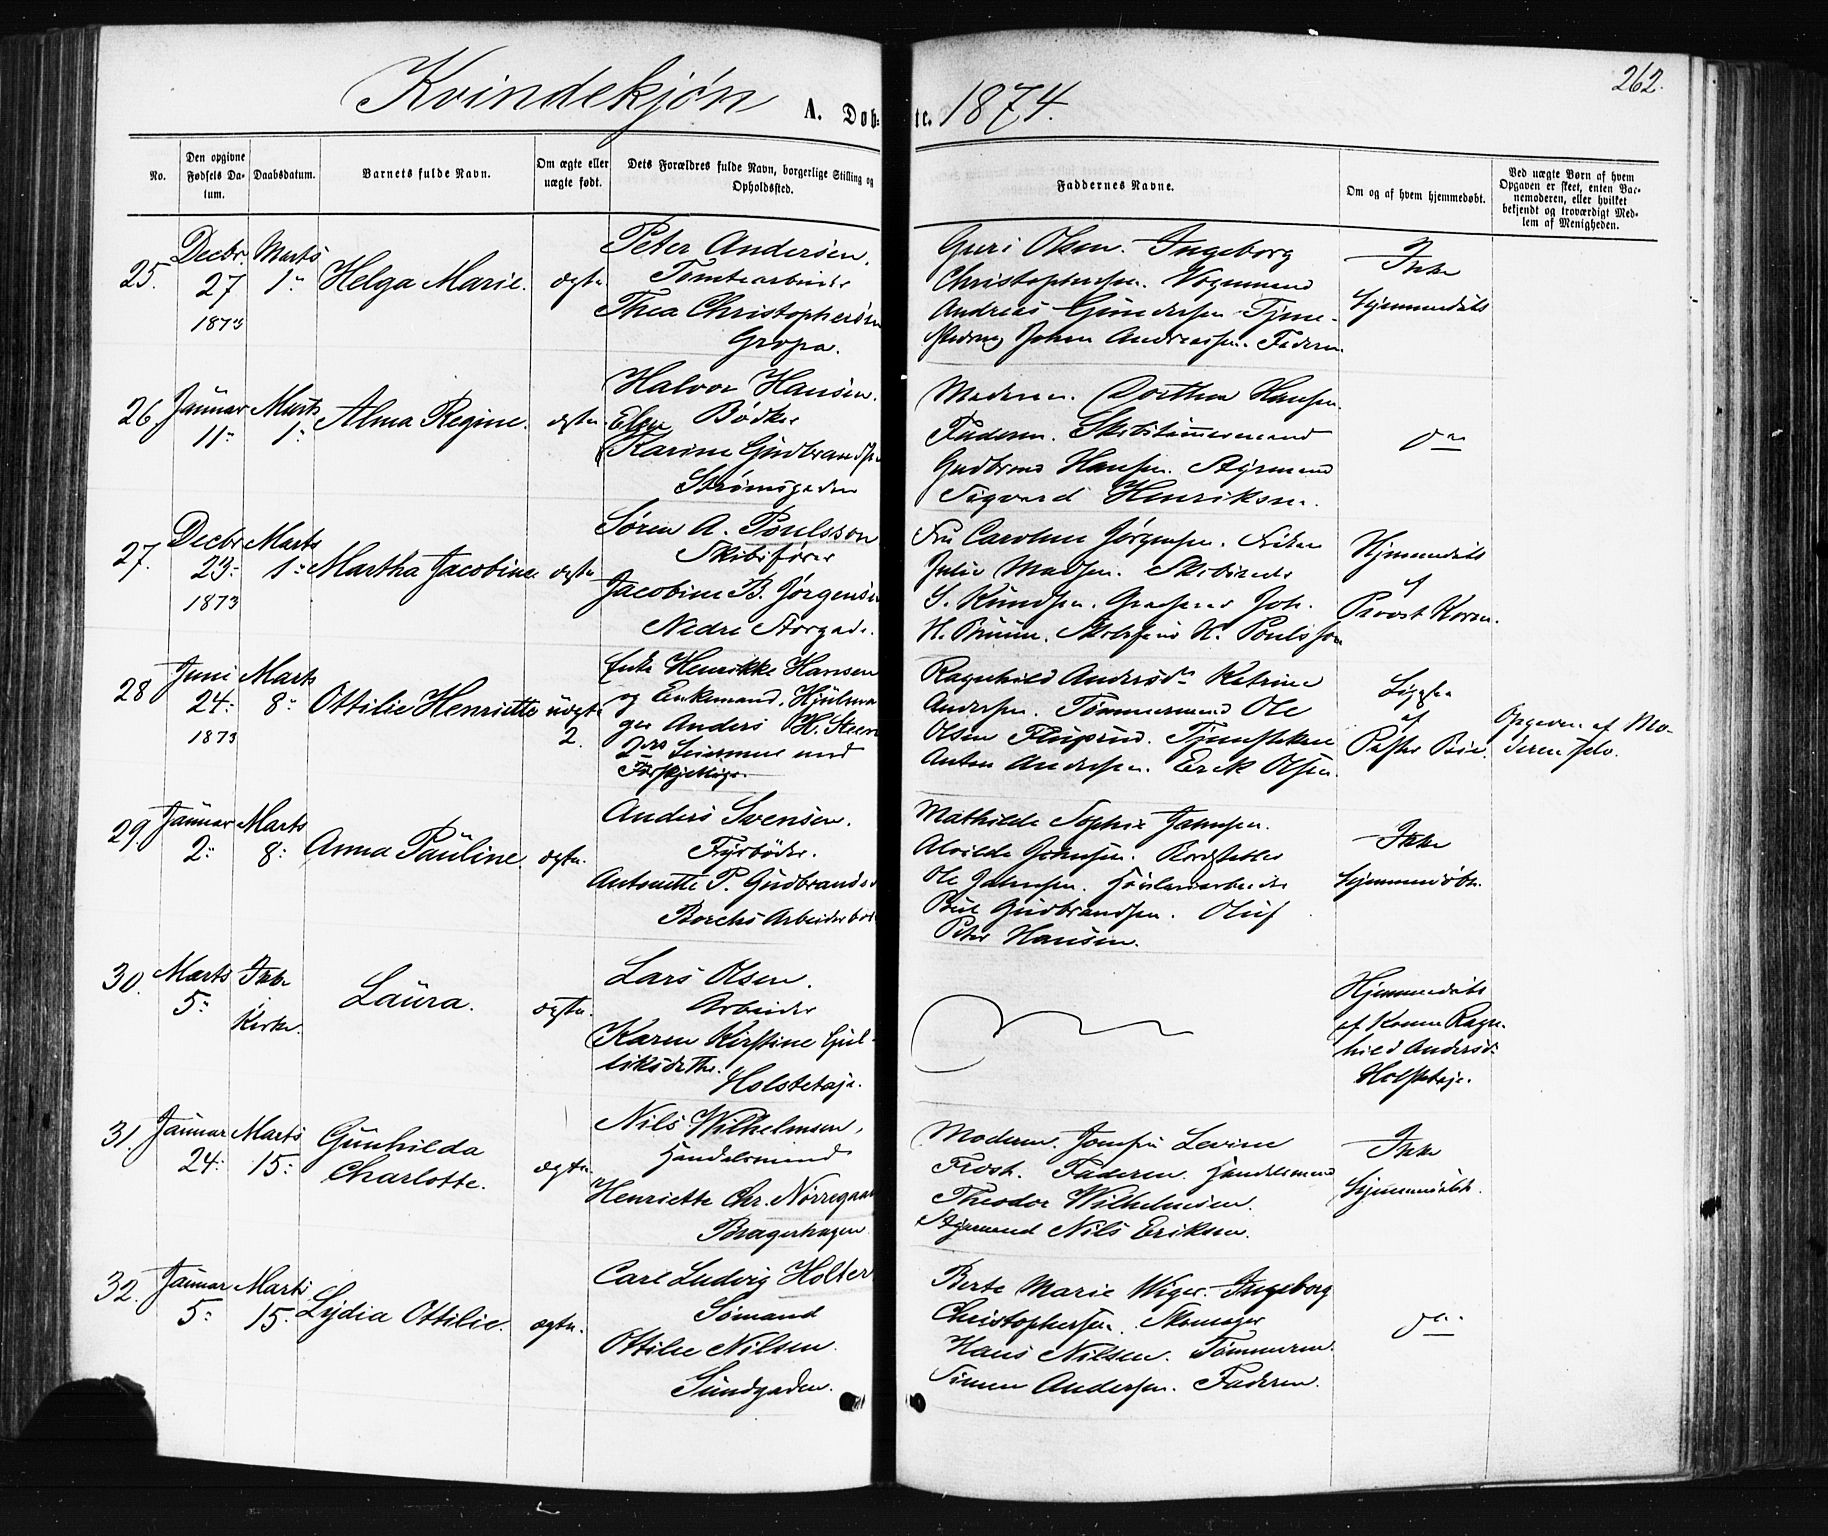 262.
Kvindekjøn A. Døbte. 1874.
No.
Den opgivne Fødsels Datum.
Daabsdatum.
Barnets fulde Navn.
Om ægte eller uægte født.
Dets Forældres fulde Navn, borgerlige Stilling og Opholdssted.
Faddernes Navne.
Om og af hvem hjemmedøbt.
Ved uægte Børn af hvem Opgaven er skeet, enten Barnemoderen, eller hvilket bekjendt og troværdigt Medlem af Menigheden.
25. Decbr. 27 1873
Marts 1.
Helga Marie.
ægte
Peter Andersen.
Tomtearbeider
Thea Christophersen
Gropa.
Guri Olsen. Ingeborg
Christophersen. Vognmand
Andreas Gundersen Tjene-
Johan Andreassen. Faderen
Ikke
hjemmedøbt
26. Januar 11.
Marts 1.
Alma Regine.
ægte
Halvor Hansen.
Bødker
Karine Gudbrandsen
Strømsgaden
Moderen. Dorthea Hansen.
Faderen. Skibstømmermand
Gudbrand Hansen. Styrmand
Sigvard Henriksen.
do
27. Decbr 23. 1873
Marts 1.
Martha Jacobine
ægte
Søren A. Poulsson
Skibsfører
Jacobine B. Jørgensen
Nedre Storgade.
Fru Caroline Jørgensen. Frøken
Julie Madsen. Skibsreder
S. Knudsen. Joh.
H. Bruun. H. Poulsson
Hjemmedøbt
af
Provst Koren.
28 Juni 24. 1873
Marts 8.
Ottilie Henriette
uægte 2.
Enke Henrikke Hansen
og Enkemand, Hjulma-
ger Anders H. Steen
2des Leiermaal med
Forskjellige.
Ragnhild Andersd. Katrine
Andersen. Tømmermand Ole
Olsen Tjenestekarl
Anton Andersen. Erik Olsen.
af
Opgiven af Mo-
deren selv.
29. Januar 2.
Marts 8.
Anna Pauline
ægte.
Anders Svensen.
Fyrbøder.
Antonette P. Gudbrands
Borchs Arbeiderbol
Mathilde Sophie Jahnsen.
Alvilde Johnsen.
Ole Jahnsen. Høvleriarbeider
Gudbrandsen. Oluf
Peter Hansen.
Ikke
hjemmedøbt.
30. Marts 5.
Ikke
Kirke.
Laura.
ægte.
Lars Olsen.
Arbeider
Karen Kirstine Gul-
liksdatter.
Holstetøje.
Hjemmedøbt
af Konen Ragn-
hild Andersd.
Holstetøje.
31. Januar 24.
Marts 15.
Gunhilda
Charlotte.
ægte.
Nils Wilhelmsen,
Handelsmand
Henriette Chr. Nørregaar
Bragerhagen
Moderen. Jomfru Levine
Frost. Faderen. Handelsmand
Theodor Wilhelmsen.
Styrmand Nils Eriksen.
Ikke
hjemmedøbt.
32. Januar 5.
Marts 15.
Lydia Ottilie.
ægte.
Carl Ludvig Holter
Sømand
Ottilie Nilsen.
Sundgaden.
Berte Marie Wiger. Ingeborg
Christophersen. Skomager
Hans Nilsen. Tømmerm.
Simen Andersen. Faderen.
do